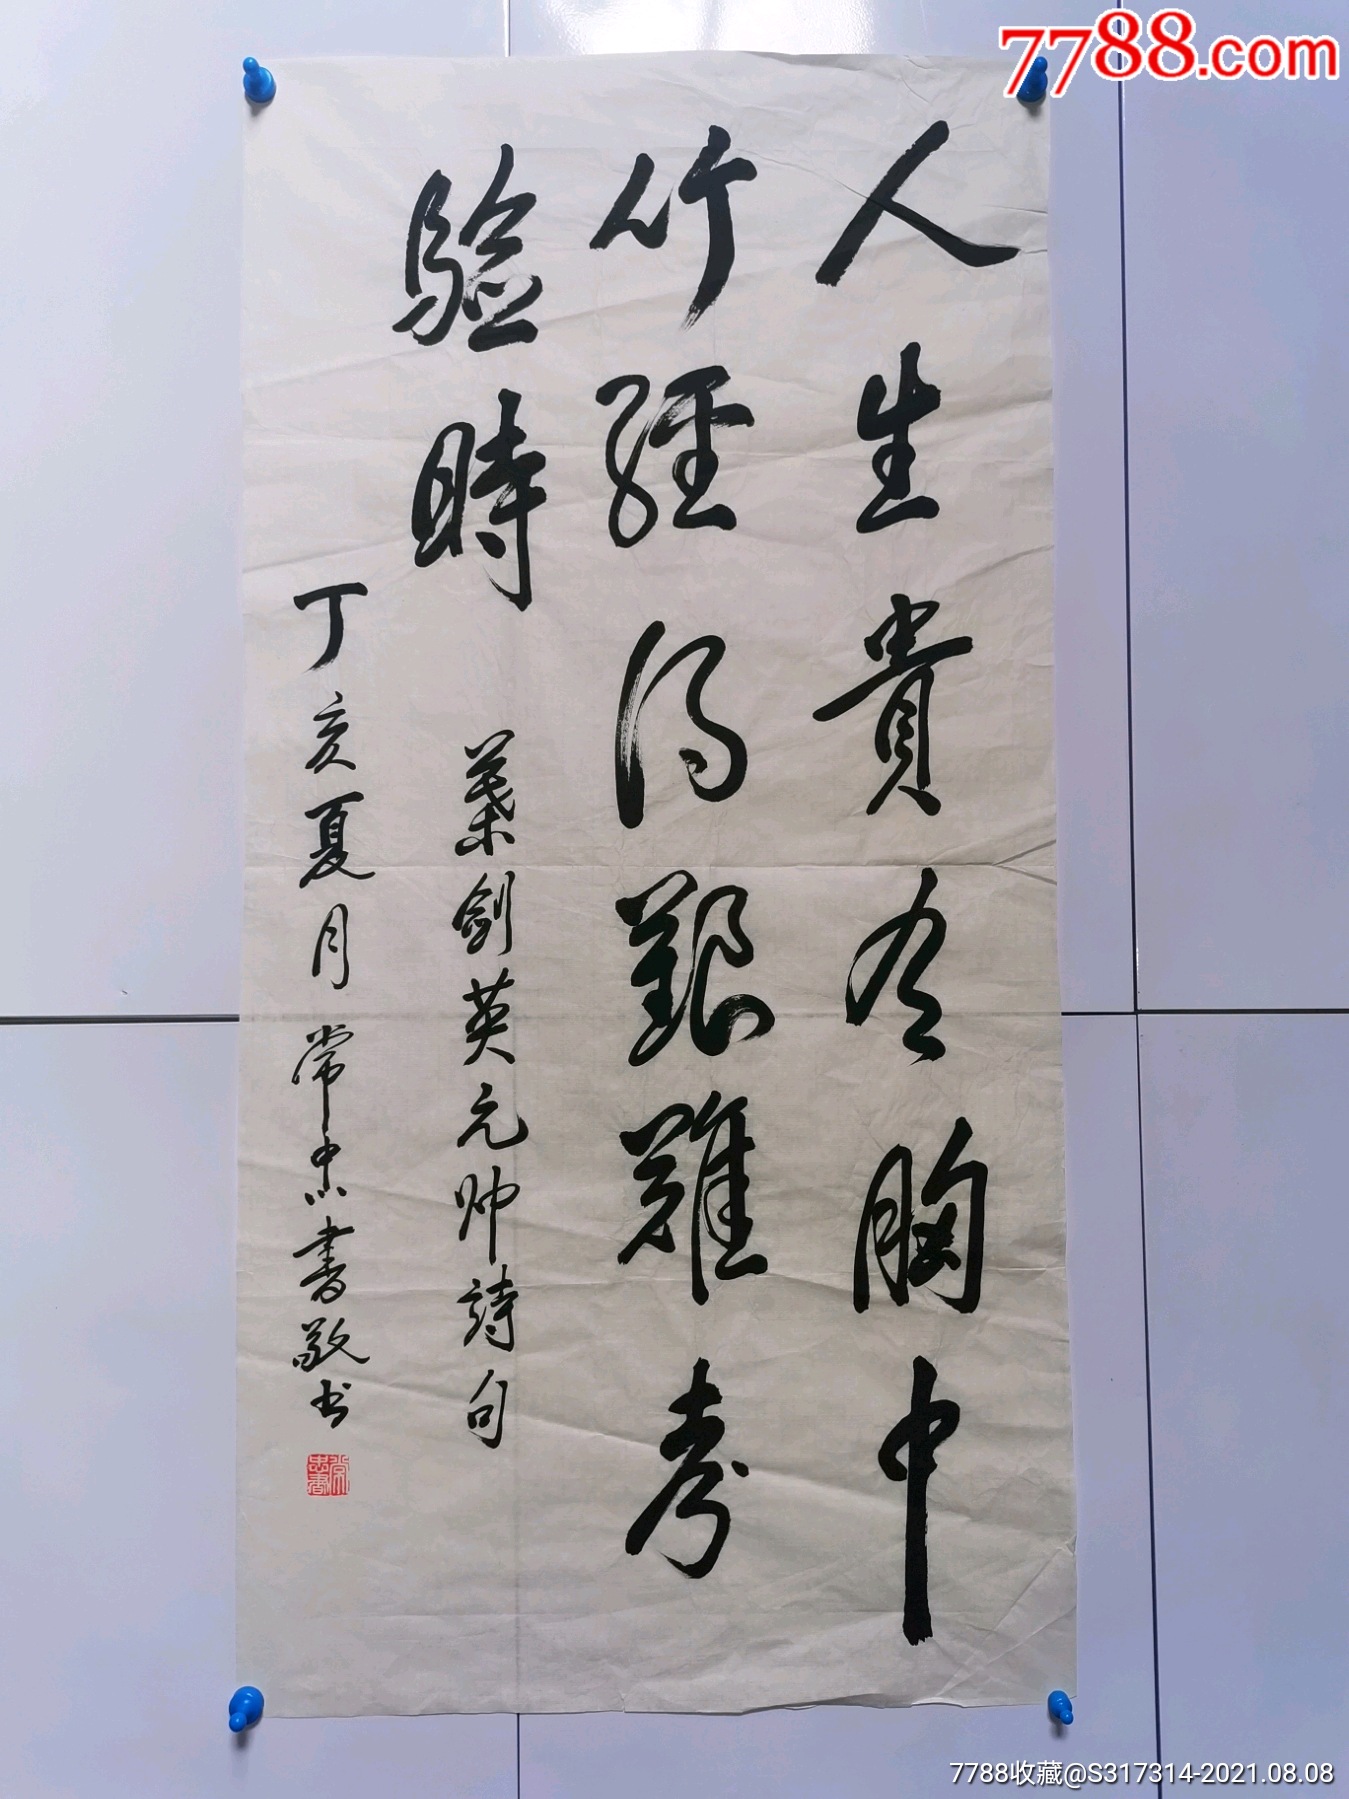 7788.com
人生貴有胸中
竹経得艱難考
驗時
葉劍英元帅詩句
丁亥夏月常忠書敬书
常忠書
7788收藏@S317314-2021.08.08